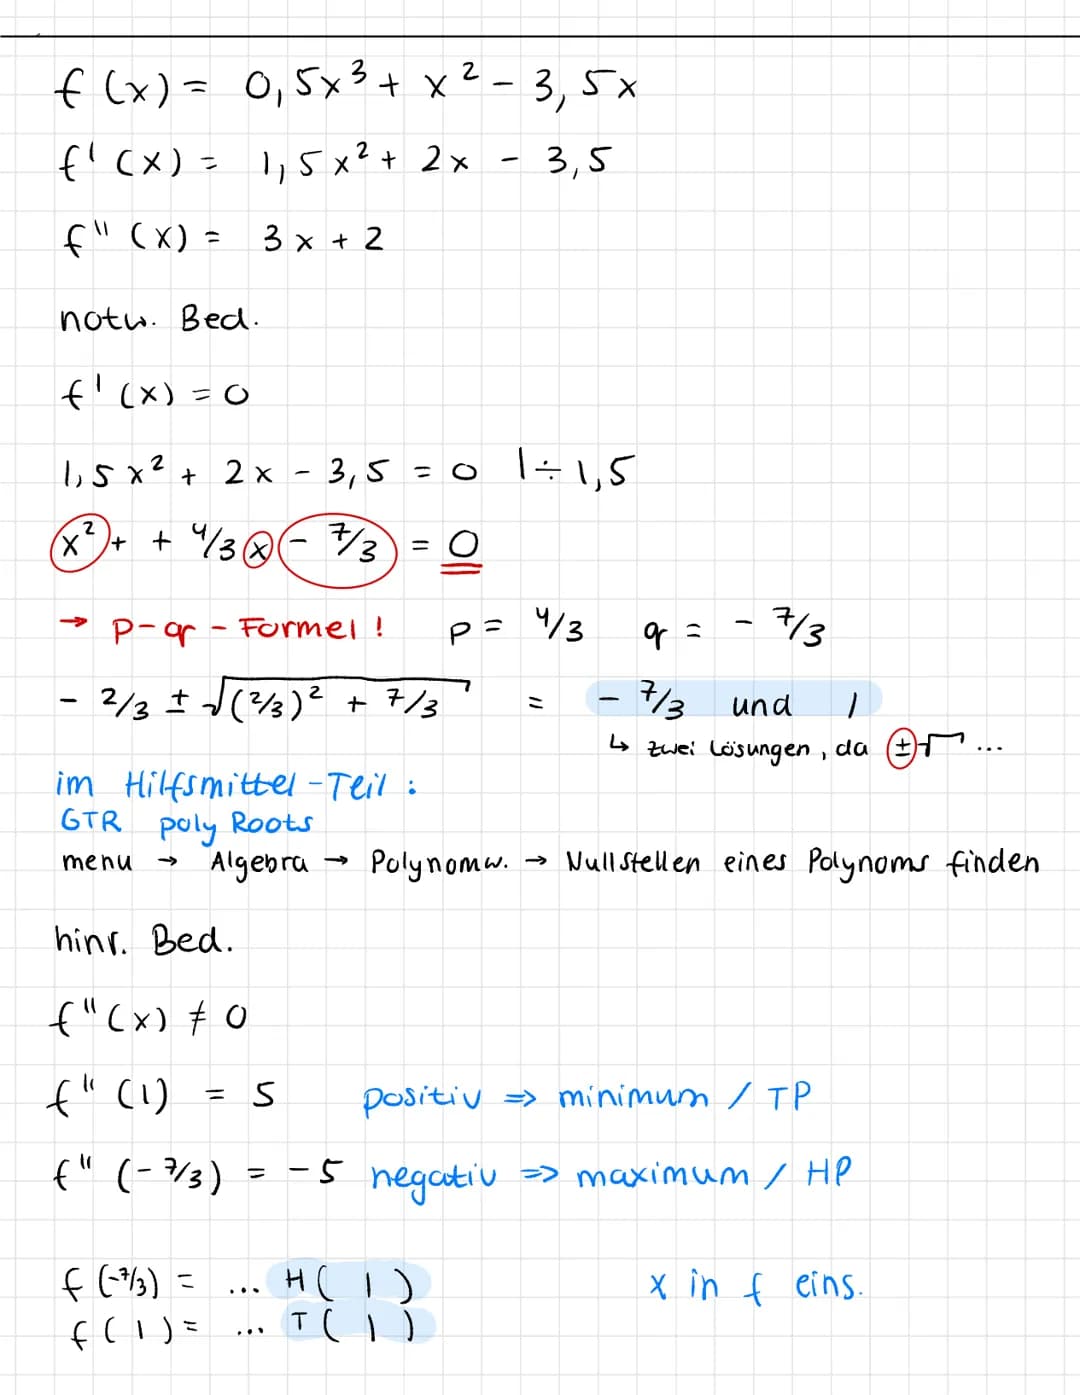 f(x) = 0,5x³ + x² - 3,5x
f'(x) = 1,5x² + 2x - 3,5
f''(x) = 3x + 2
notw. Bed.
f'(x) = 0
1,5x² + 2x - 3,5 = 0 |÷1,5
x² + + 4/3 x - 7/3 = 0
→ p-q-Formel! p = 4/3 q = - 7/3
- 2/3 ± √(2/3)² + 7/3 = - 7/3 und 1
↳ zwei Lösungen, da ±√ ...
im Hilfsmittel-Teil:
GTR poly Roots
menu → Algebra → Polynomw. → Nullstellen eines Polynoms finden
hinr. Bed.
f''(x) ≠ 0
f''(1) = 5 positiv => minimum / TP
f''(-7/3) = -5 negativ => maximum / HP
f(-7/3) = ... H( | ) x in f eins.
f(1) = ... T( | )